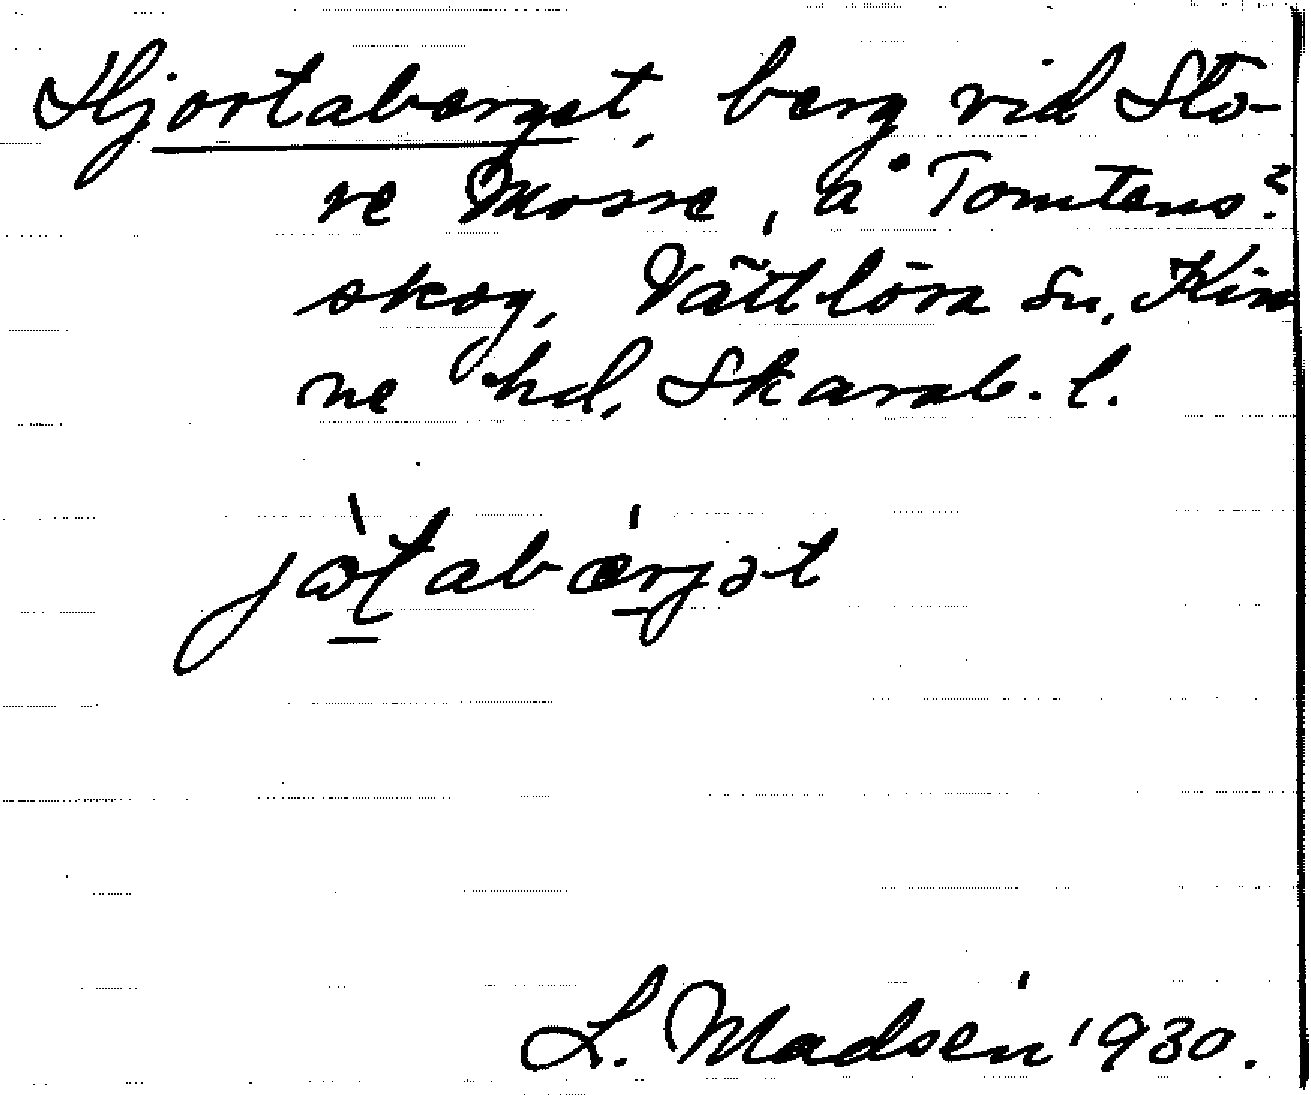 Hjortaberget, berg vid Sto-
re Mosse, å Tomtens?
skog, Vättlösa sn, Kin
ne hd, Skarab. l.
jòʈabǽrjət
L. Madsén 1930.